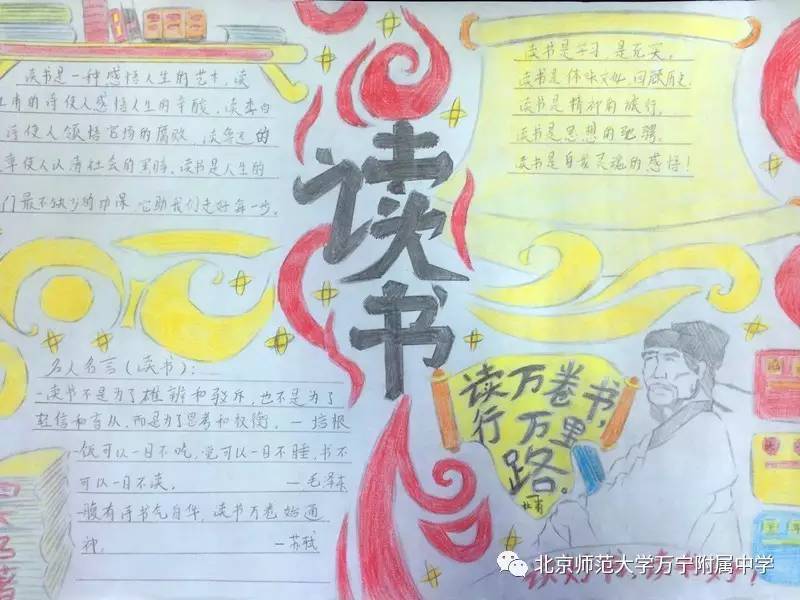 读书是一种感悟人生的艺术,读
甫的诗使人感悟人生的辛酸,读李白
诗使人领悟官场的腐败,读鲁迅的
章使人认清社会的黑暗,读书是人生的
门最不缺少的功课,它助我们走好每一步。
读书
读书是学习,是充实。
读书是体味文化,回顾历史.
读书是精神的旅行。
读书是思想的驰骋。
读书是自我灵魂的感悟!
名人名言(读书):
读书不是为了雄辩和驳斥,也不是为了
轻信和盲从,而是为了思考和权衡。—培根
饭可以一日不吃,觉可以一日不睡,书不
可以一日不读。 —毛泽东
腹有诗书气自华,读书万卷始通
神。 —苏轼
四大名著
读万卷书,
行万里
路。
北京师范大学万宁附属中学